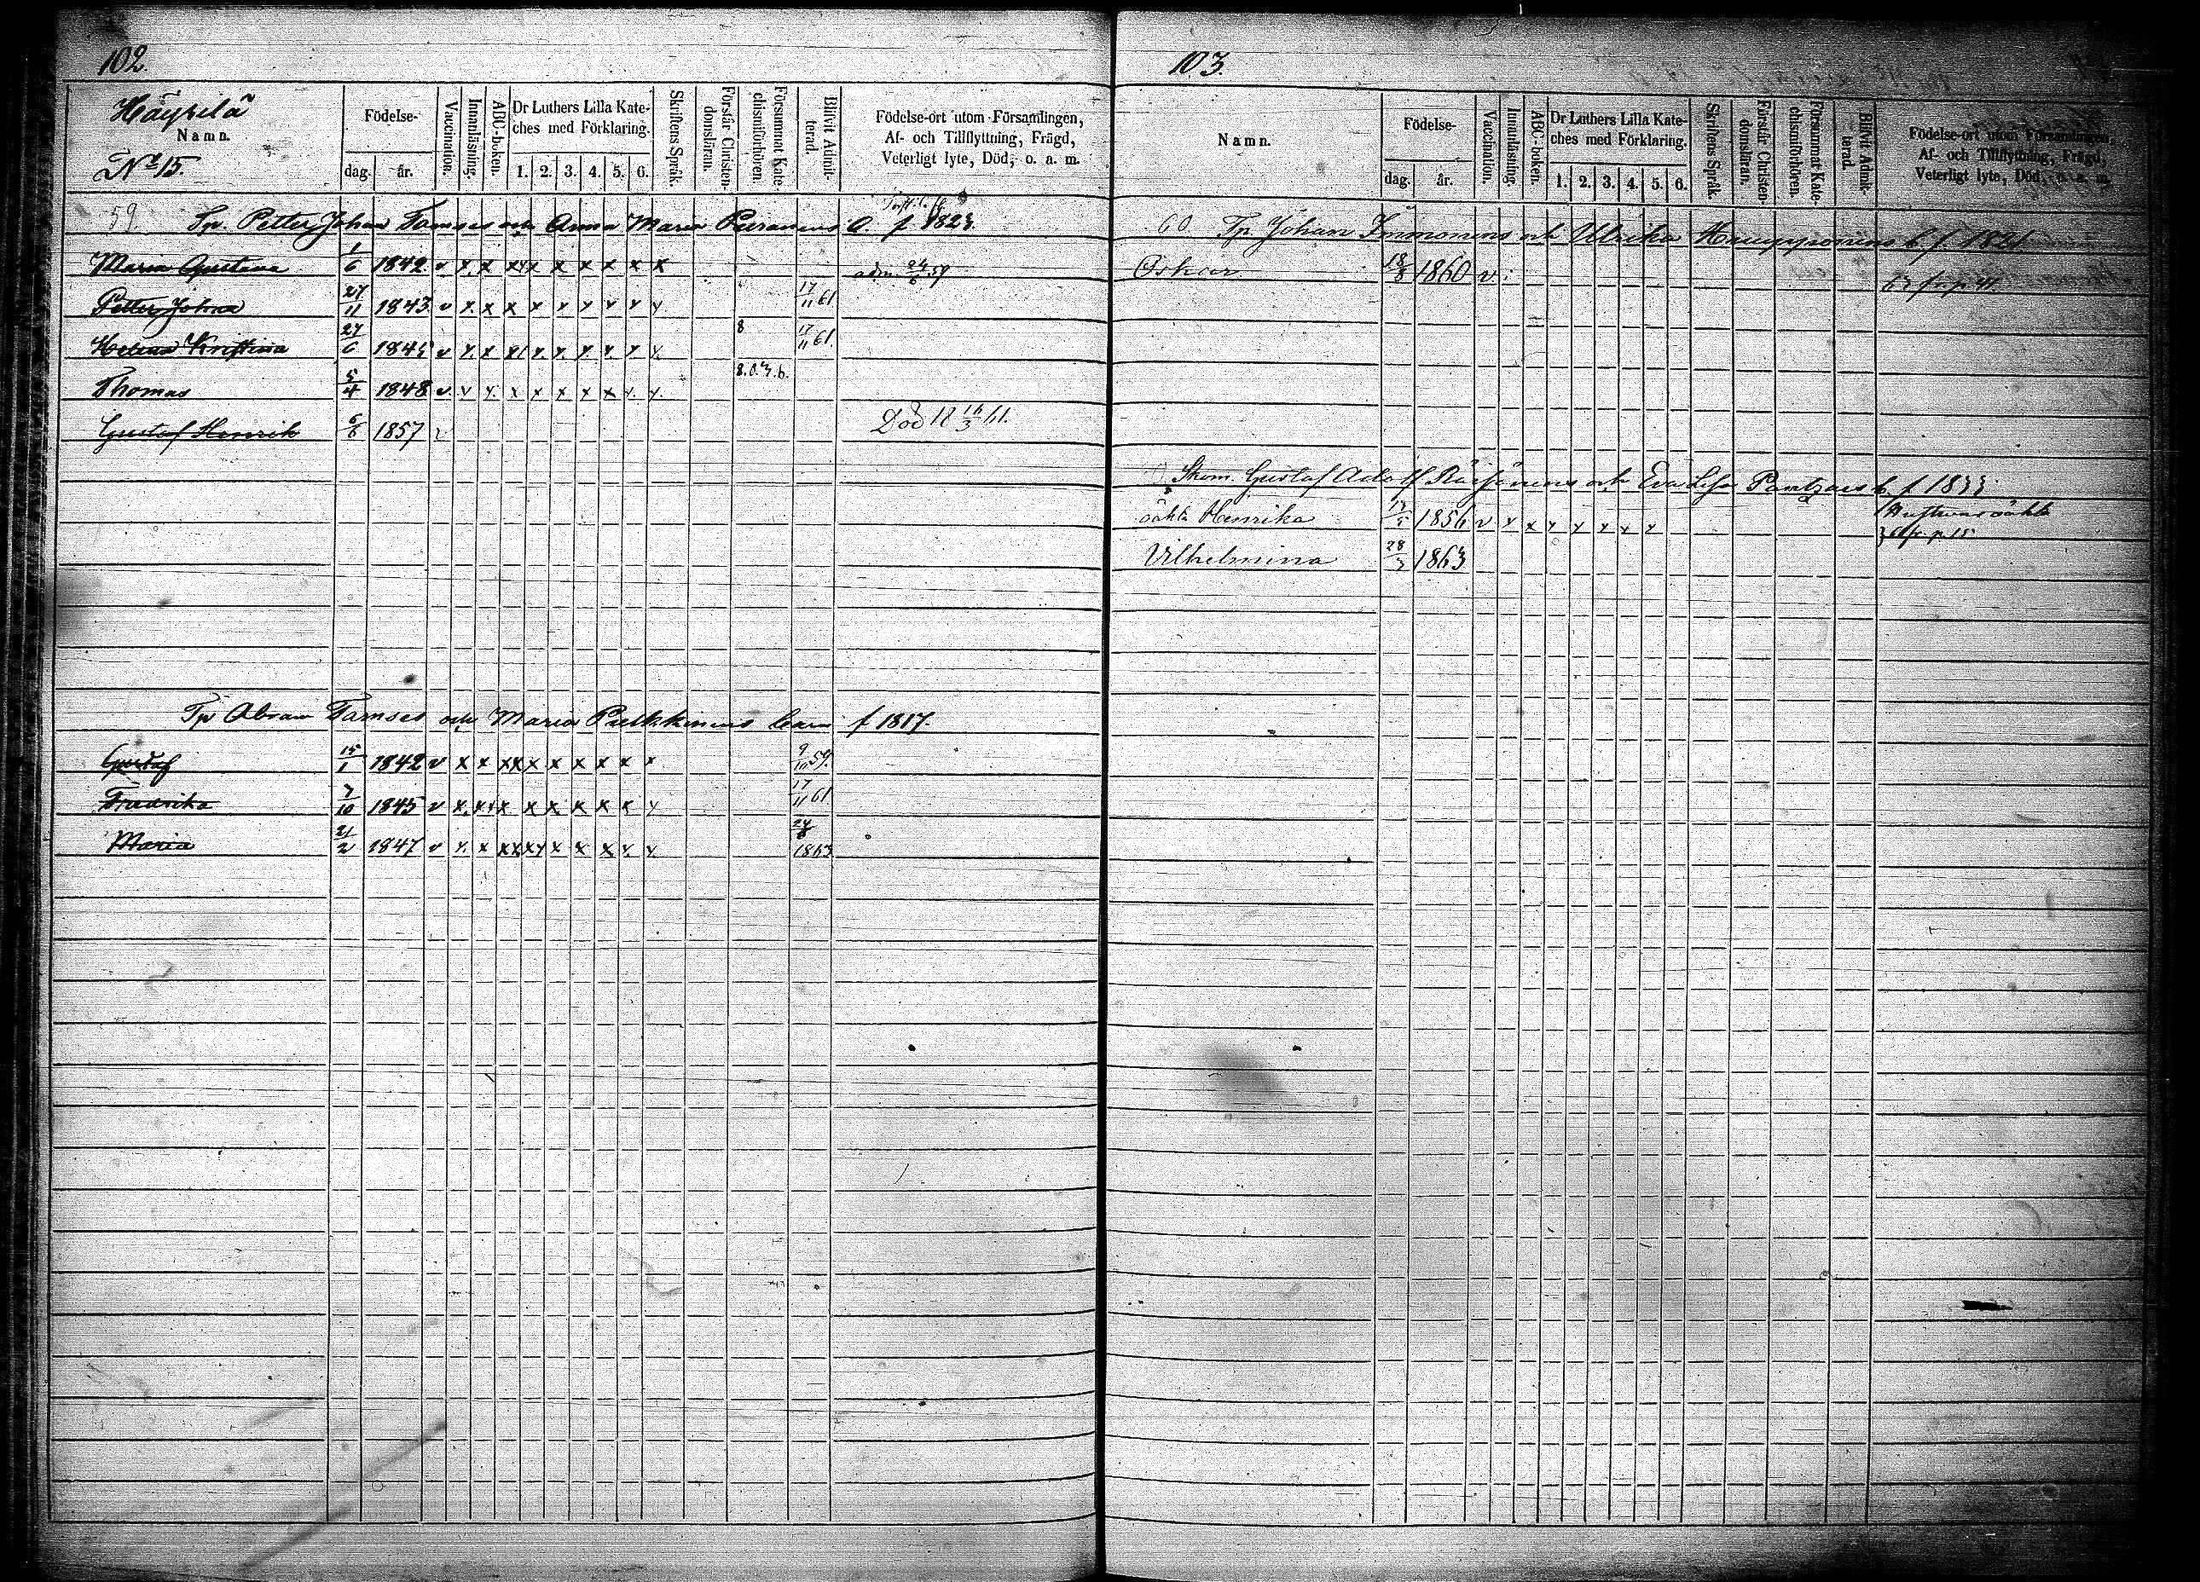 102.
Häyrilä
Namn.
No 15.
Födelse-
dag. år.
Vaccination.
Innanläsning.
ABC-boken.
Dr Luthers Lilla Kate-
ches med Förklaring.
1. 2. 3. 4. 5. 6.
Skriftens Språk.
Förstår Christen-
domsläran.
Försummat Kate-
chismiförhören.
Blifvit Admit-
terad.
Födelse-ort utom Församlingen,
Af- och Tillflyttning, Frägd,
Veterligt lyte, Död, o. a. m.
59. Tp. Petter Johan Tamses och Anna Maria b. f 1823
Maria Gustava 1/6 1842 v x x xx x x x x x x adm. 24/6 59
Petter Johan 27/11 1843 v x x x x x x x x x 17/11 61
Helena Kristina 27/6 1845 v x x x x x x x x x 8 17/11 61
Thomas 5/4 1848 v v x x x x x x x x
Gustaf Henrik 6/6 1857 v Död 18 16/3 61.
Tp Abram Tamses och Maria Pulkkinens barn f 1817.
Gustaf 15/1 1842 v x x xx x x x x x x 9/11 59.
Fredrika 7/10 1845 v x x x x x x x x x 17/11 61
Maria 21/2 1847 v x x xx x x x x x x 24/6 1863
103.
Namn.
Födelse-
dag. år.
Vaccination.
Innanläsning.
ABC-boken.
Dr Luthers Lilla Kate-
ches med Förklaring.
1. 2. 3. 4. 5. 6.
Skriftens Språk.
Förstår Christen-
domsläran.
Försummat Kate-
chismiförhören.
Blifvit Admit-
terad.
Födelse-ort utom Församlingen,
Af- och Tillflyttning, Frägd,
Veterligt lyte, Död, o. a. m.
60. Tp. Johan Immonens och Ulrika b. f 1821
Oskar 18/8 1860 v fr. p 41
Skom. Gustaf Adolf Räisänens och Eva Lisa Pantzars b. f 1833
oäkta Henrika 1856 v x x x x x x x oäkta
fr. p 15
Vilhelmina 28/7 1863